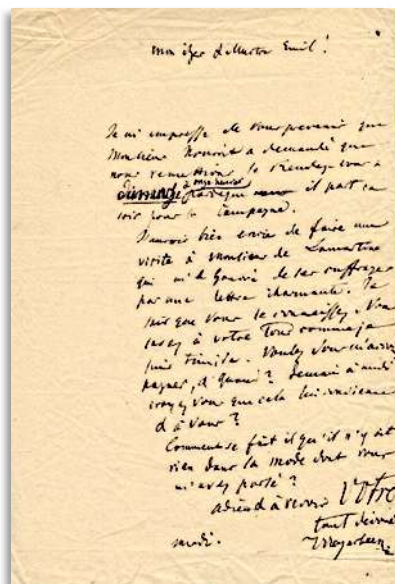 mon cher
Je m'empresse de vous prevenir que
Monsieur Nourrit a demandé que
nous remettions le rendez-vous à
dimanche à onze heures parceque il part ce
soir pour la campagne.
J'aurois bien envie de faire une
visite à Monsieur de Lamartine
qui m'a honoré de ses suffrages
par une lettre charmante. Je
sais que vous le connaissez. Vous
savez à votre tour comme je
suis timide. Voulez vous m'accom
pagner, et quand? demain à midi
croyez vous que cela lui convienne
et à vous?
Comment se fait il qu'il n'y ait
rien dans la mode dont vous
m'avez parlé?
adieu à revoir Votre
tout devoué
Meyerbeer.